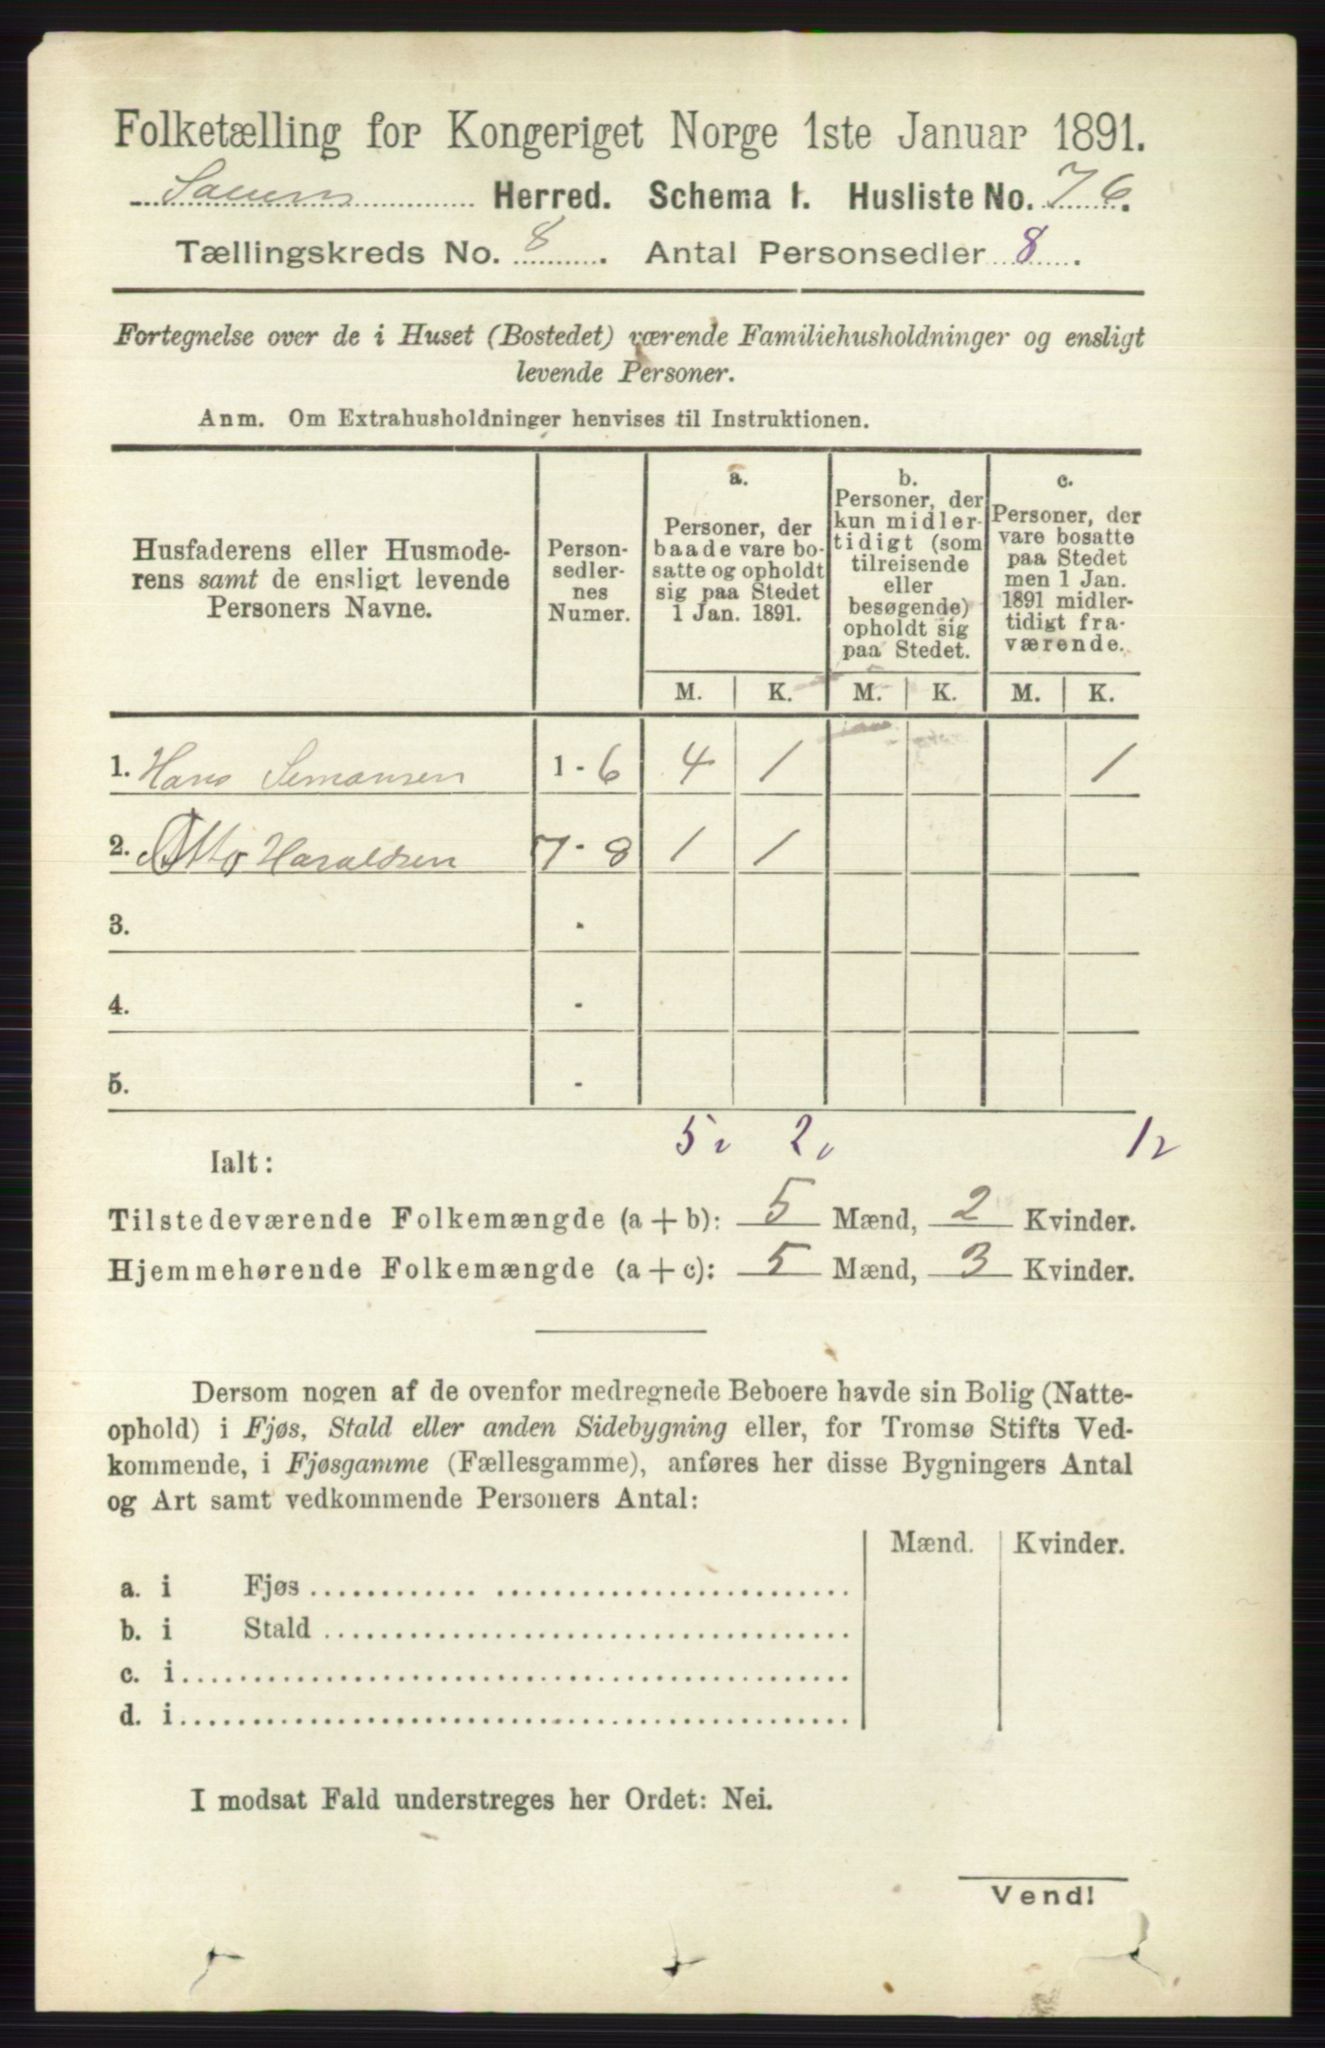 Folketælling for Kongeriget Norge 1ste Januar 1891.
Herred. Schema I. Husliste No. 76.
Tællingskreds No. 8. Antal Personsedler 8.
Fortegnelse over de i Huset (Bostedet) værende Familiehusholdninger og ensligt
levende Personer.
Anm. Om Extrahusholdninger henvises til Instruktionen.
Husfaderens eller Husmode-
rens samt de ensligt levende
Personers Navne.
Person-
sedler-
nes
Numer.
a.
Personer, der
baade vare bo-
satte og opholdt
sig paa Stedet
1 Jan. 1891.
b.
Personer, der
kun midler-
tidigt (som
tilreisende
eller
besøgende)
opholdt sig
paa Stedet.
c.
Personer, der
vare bosatte
paa Stedet
men 1 Jan.
1891 midler-
tidigt fra-
værende.
M. K. M. K. M. K.
1. Hans Simonsen 1 - 6 4 1 1
2. Otto Haraldsen 7 - 8 1 1
3. -
4. -
5. -
5 2 1
Ialt:
Tilstedeværende Folkemængde (a + b): 5 Mænd, 2 Kvinder.
Hjemmehørende Folkemængde (a + c): 5 Mænd, 3 Kvinder.
Dersom nogen af de ovenfor medregnede Beboere havde sin Bolig (Natte-
ophold) i Fjøs, Stald eller anden Sidebygning eller, for Tromsø Stifts Ved-
kommende, i Fjøsgamme (Fællesgamme), anføres her disse Bygningers Antal
og Art samt vedkommende Personers Antal:
Mænd. Kvinder.
a. i Fjøs
b. i Stald
c. i
d. i
I modsat Fald understreges her Ordet: Nei.
Vend!